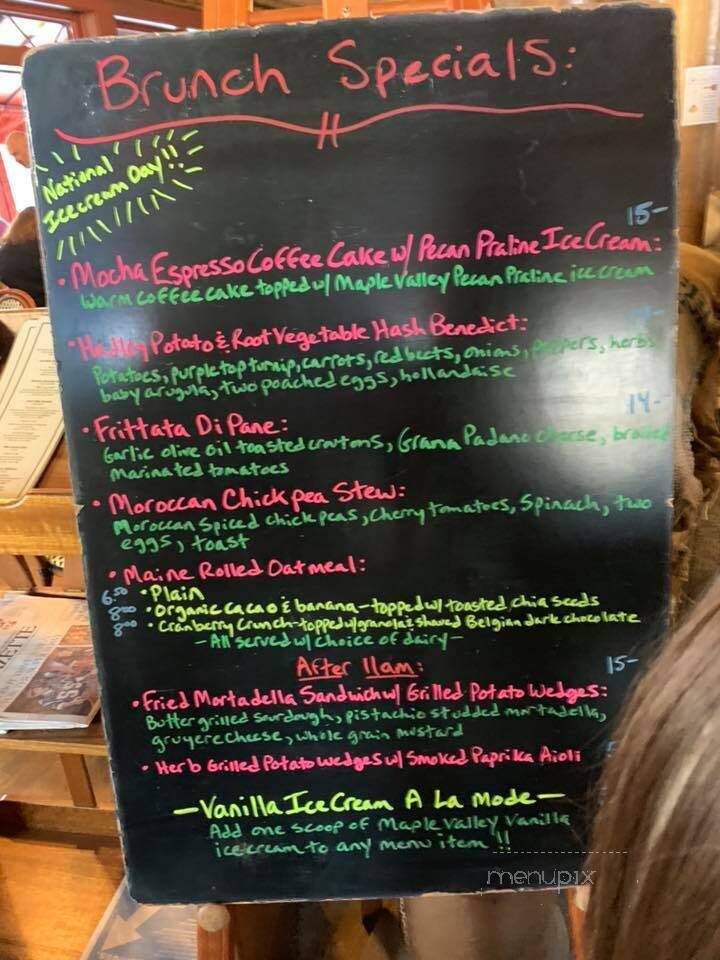 Brunch Specials:
National
Icecream Day!!
15-
• Mocha Espresso Coffee Cake w/ Pecan Praline Ice Cream:
Warm coffee cake topped w/ Maple Valley Pecan Praline ice cream
• Hadley Potato & Root Vegetable Hash Benedict:
Potatoes, purple top turnip, carrots, red beets, onions, peppers, herbs
baby arugula, two poached eggs, hollandaise
14-
• Frittata Di Pane:
Garlic olive oil toasted croutons, Grana Padano cheese,
marinated tomatoes
• Moroccan Chickpea Stew:
Moroccan spiced chickpeas, cherry tomatoes, spinach, two
eggs, toast
• Maine Rolled Oatmeal:
6.50 • Plain
8.00 • Organic cacao & banana - topped w/ toasted chia seeds
8.00 • Cranberry Crunch - topped w/ granola & shaved Belgian dark chocolate
- All served w/ choice of dairy -
After 11am:
15-
• Fried Mortadella Sandwich w/ Grilled Potato Wedges:
Butter grilled sourdough, pistachio studded mortadella,
gruyere cheese, whole grain mustard
• Herb Grilled Potato Wedges w/ Smoked Paprika Aioli
- Vanilla Ice Cream A La Mode -
Add one scoop of Maple Valley Vanilla
ice cream to any menu item!!
menupix